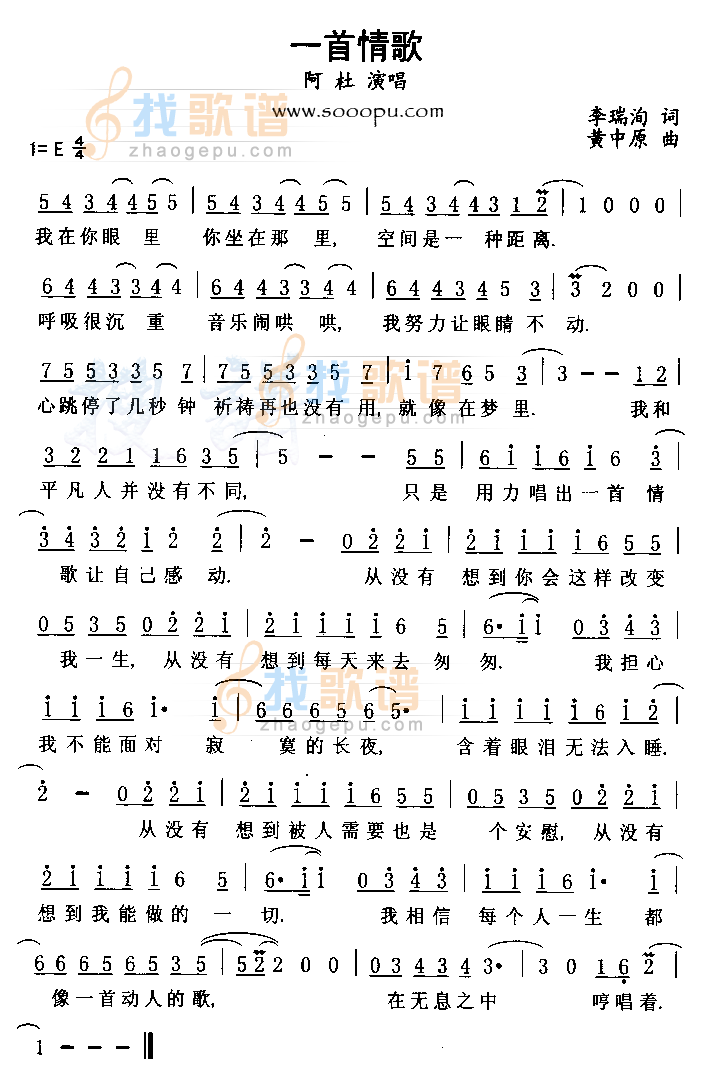 一首情歌
阿 杜 演唱
www.sooopu.com
李瑞洵 词
黄中原 曲
找歌谱
zhaogepu.com
1= E 4/4
5 4 3 4 4 4 5 5 | 5 4 3 4 4 4 5 5 | 5 4 3 4 4 3 1 2 | 1 0 0 0 |
我在你眼 里 你坐在那 里, 空间是一 种距离.
6 4 4 3 3 4 4 | 6 4 4 3 3 4 4 | 1 6 4 4 3 4 5 3 | 3 2 0 0 |
呼吸很沉 重 音乐闹哄 哄, 我努力让眼睛 不 动.
7 5 5 3 3 5 7 | 7 5 5 3 3 5 7 | 1 7 6 5 3 | 3 - - 1 2 |
心跳停了几秒 钟 祈祷再也没有 用, 就 像 在 梦 里. 我和
找歌谱
zhaogepu.com
3 2 2 1 1 6 3 5 | 5 - - 5 5 | 6 1 1 6 1 6 3 |
平凡人并没有不同, 只是 用力唱出一首 情
3 4 3 2 1 2 2 | 2 - 0 2 2 1 | 2 1 1 1 1 6 5 5 |
歌让自己感 动. 从没有 想到你会这样改变
0 5 3 5 0 2 2 1 | 2 1 1 1 1 6 5 | 6· 1 1 0 3 4 3 |
我一生, 从没有 想到每天来去 匆 匆. 我担心
找歌谱
zhaogepu.com
1 1 1 6 1· 1 | 6 6 6 5 6 5· | 1 1 1 1 6 1 2 |
我不能面对 寂 寞的长夜, 含着眼泪无法入睡.
2 - 0 2 2 1 | 2 1 1 1 1 6 5 5 | 0 5 3 5 0 2 2 1 |
从没有 想到被人需要也是 个安慰, 从没有
2 1 1 1 1 6 5 | 6· 1 1 0 3 4 3 | 1 1 1 6 1· 1 |
想到我能做的 一 切. 我相信 每个人一生 都
6 6 6 5 6 5 3 5 | 5 2 2 0 0 | 0 3 4 3 4 3· | 3 0 1 6 2 |
像一首动人的歌, 在无息之中 哼唱着.
找歌谱
zhaogepu.com
1 - - -